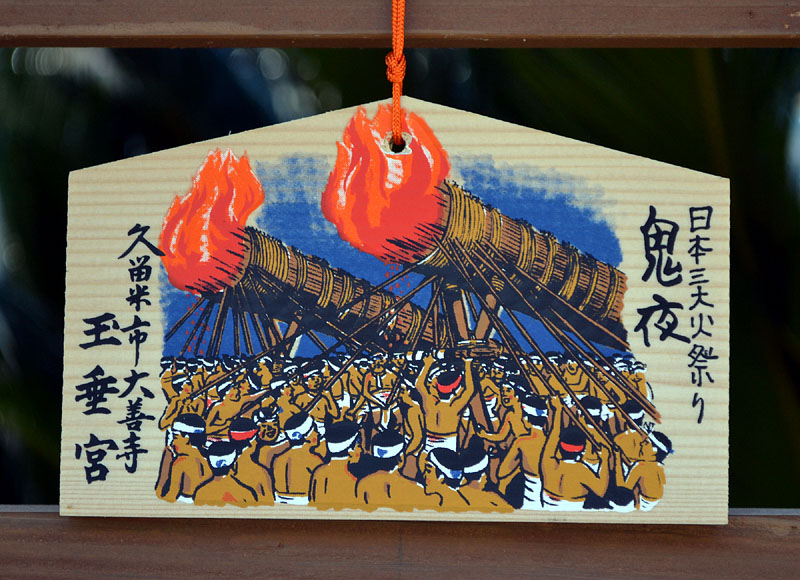 日本三大火祭り
鬼夜
久留米市大善寺
玉垂宮